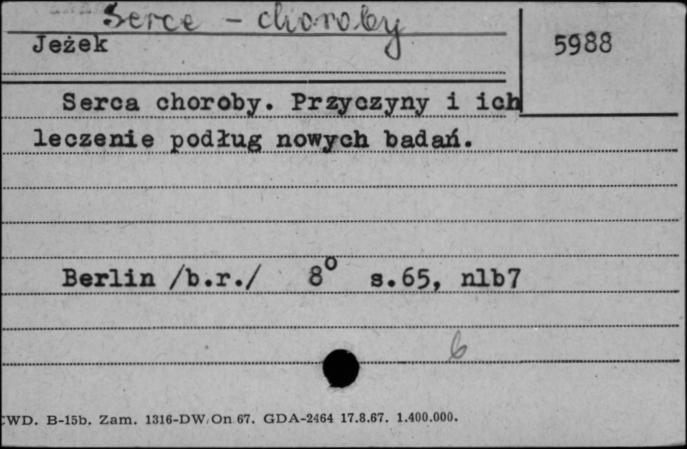 Serce - choroby
Jeżek
5988
Serca choroby. Przyczyny i ich
leczenie podług nowych badań.
Berlin /b.r./ 8° s.65, nlb7
6
CWD. B-15b. Zam. 1316-DW/On 67. GDA-2464 17.8.67. 1.400.000.